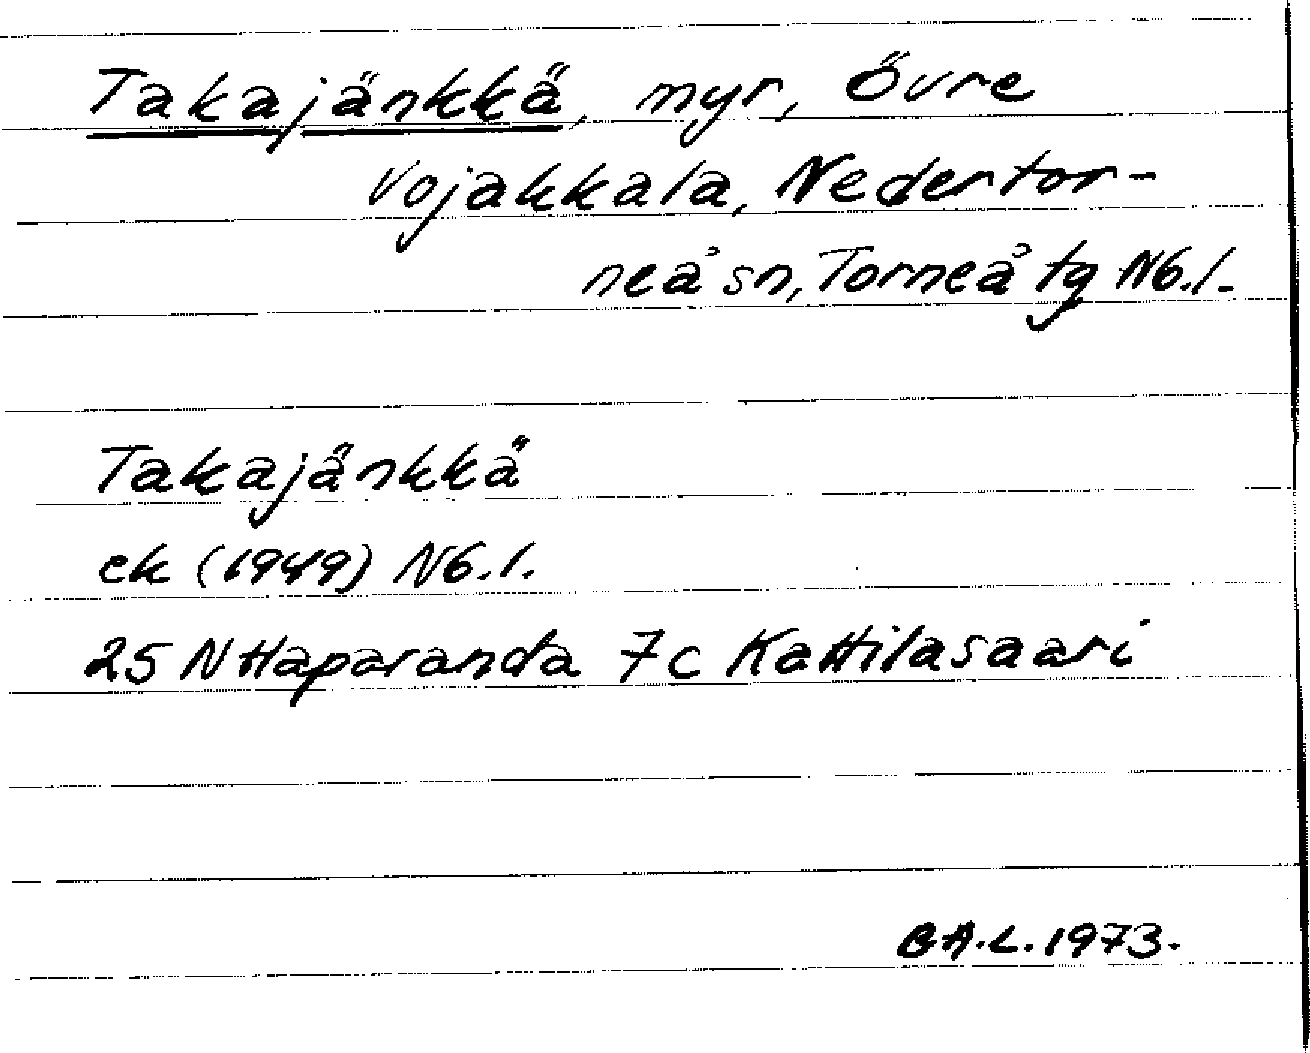 Takajänkkä, myr, Övre
Vojakkala, Nedertor-
neå sn, Torneå tg Nb.l.
Takajänkkä
ek (1949) Nb.l.
25 N Haparanda 7c Kattilasaari
B A.L. 1973.